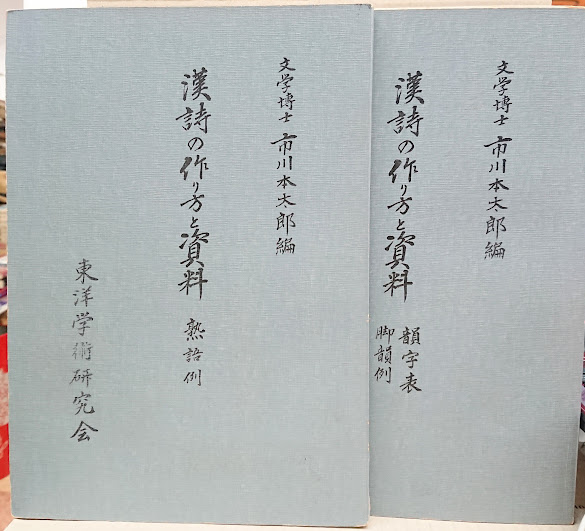 文学博士 市川本太郎編
漢詩の作り方と資料 熟語例
東洋学術研究会
文学博士 市川本太郎編
漢詩の作り方と資料 韻字表
脚韻例